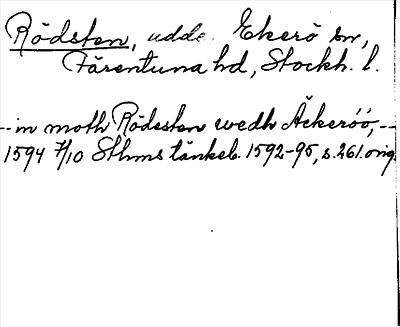 Rödsten, udde, Ekerö sn,
Färentuna hd, Stockh. l.
-- in moth Rödesten wedh Äckeröö, --
1594 7/10 Sthms tänkeb. 1592-95, s. 261. orig.